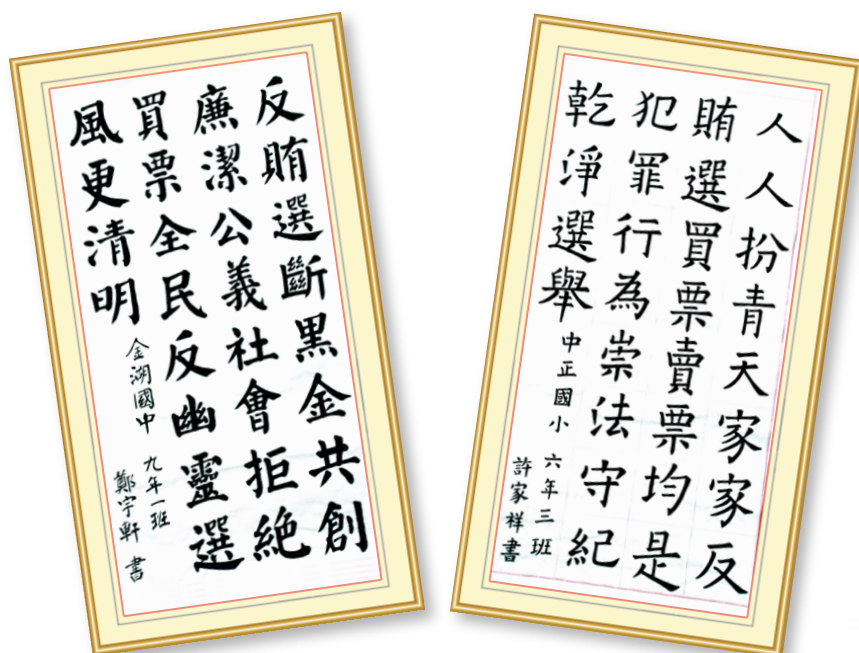 反賄選斷黑金共創
廉潔公義社會拒絕
買票全民反幽靈選
風更清明
金湖國中
九年一班
鄭宇軒 書
人人扮青天家家反
賄選買票賣票均是
犯罪行為崇法守紀
乾淨選舉
中正國小
六年三班
許家祥書